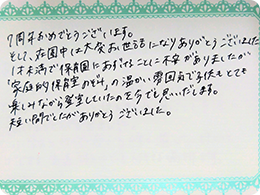 7周年おめでとうございます。
そして、在園中は大変お世話になりありがとうございました
1才未満で保育園にあずけることに不安がありましたが
「家庭的保育室のぞみ」の温かい雰囲気で子供もとても
楽しみながら登室していたのを今でも思いだします。
短い間でしたがありがとうございました。